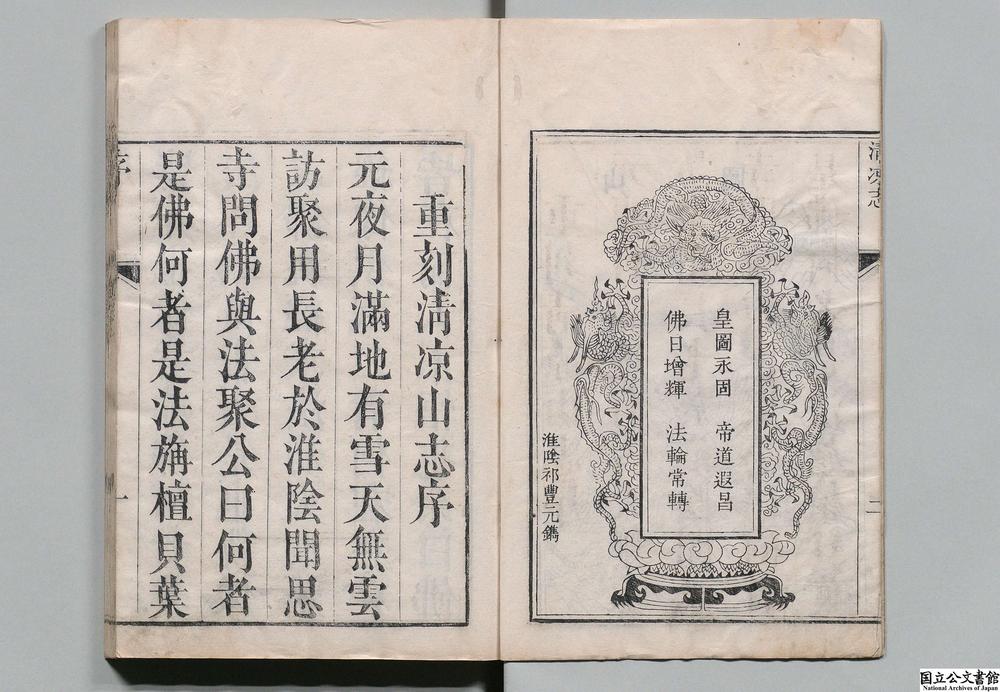 清凉志
皇圖永固　帝道遐昌
佛日增輝　法輪常轉
淮陰祁豐元鐫
二
重刻清凉山志序
元夜月滿地有雪天無雲
訪聚用長老於淮陰聞思
寺問佛與法聚公曰何者
是佛何者是法旃檀貝葉
序
一
国立公文書館
National Archives of Japan